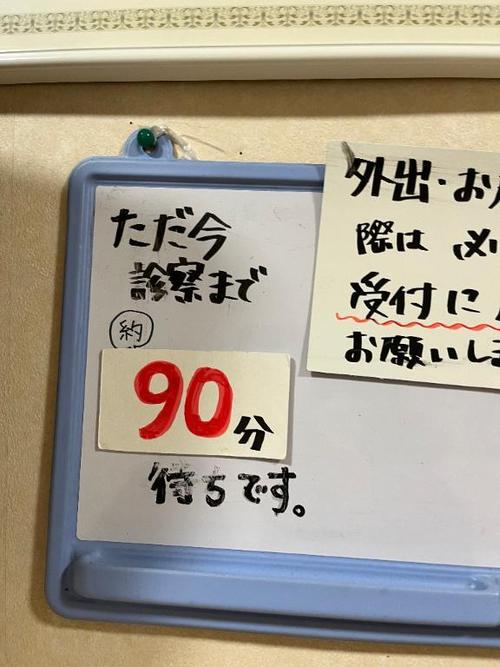 ただ今
診察まで
約
90分
待ちです。
外出・お
際は 必
受付に
お願いしま